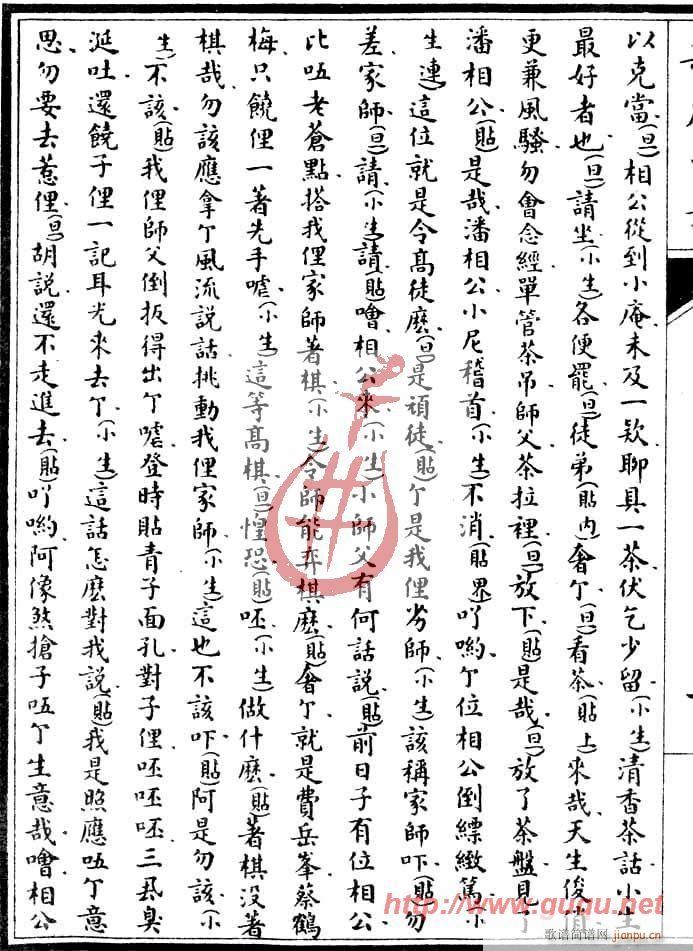 以克當(旦)相公從到小庵未及一欵聊具一茶伏乞少留(小生)清香茶話小生
最好者也(旦)請坐(小生)各便罷(旦)徒弟(貼內)奢亇(旦)看茶(貼上)來哉天生俊俏
更兼風騷勿會念經單管茶吊師父茶拉裡(旦)放下(貼)是哉(旦)放了茶盤見了
潘相公(貼)是哉潘相公小尼稽首(小生)不消(貼界)吖喲亇位相公倒縹緻篤(小
生連)這位就是令高徒麽(旦)是頑徒(貼)亇是我俚劣師(小生)該稱家師吓(貼)勿
差家師(旦)請(小生)請(貼)噲相公來(小生)小師父有何話說(貼)前日子有位相公
比㕶老蒼點搭我俚家師著棋(小生)令師能弈棋麽(貼)奢亇就是費岳峯蔡鶴
梅只饒俚一著先手嘘(小生)這等高棋(旦)惶恐(貼)呸(小生)做什麽(貼)著棋沒著
棋哉勿該應拿亇風流說話挑動我俚家師(小生)這也不該吓(貼)阿是勿該(小
生)不該(貼)我俚師父倒扳得出亇嘘登時貼青子面孔對子俚呸呸呸三𠃵臭
涎吐還饒子俚一記耳光來去亇(小生)這話怎麽對我說(貼)我是照應㕶亇意
思勿要去惹俚(旦)胡說還不走進去(貼)吖喲阿像煞搶子㕶亇生意哉噲相公
http://www.guqu.net
歌谱简谱网
jianpu.cn